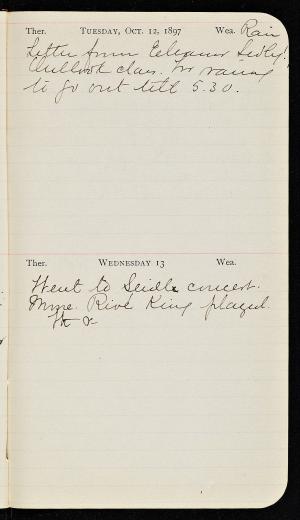 Ther. TUESDAY, OCT. 12, 1897 Wea. Rain
Letter from Eleanor
class. Too rainy
to go out till 5.30.
Ther. WEDNESDAY 13 Wea.
Went to Seidl concert.
Mme. Rivé King played.